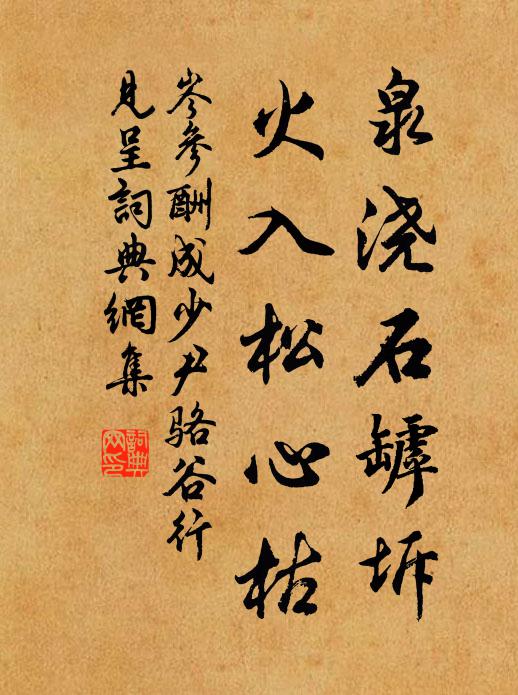 泉浇石罅坼
火入松心枯
岑参酬成少尹骆谷行
見呈詞典網集
詞典网印